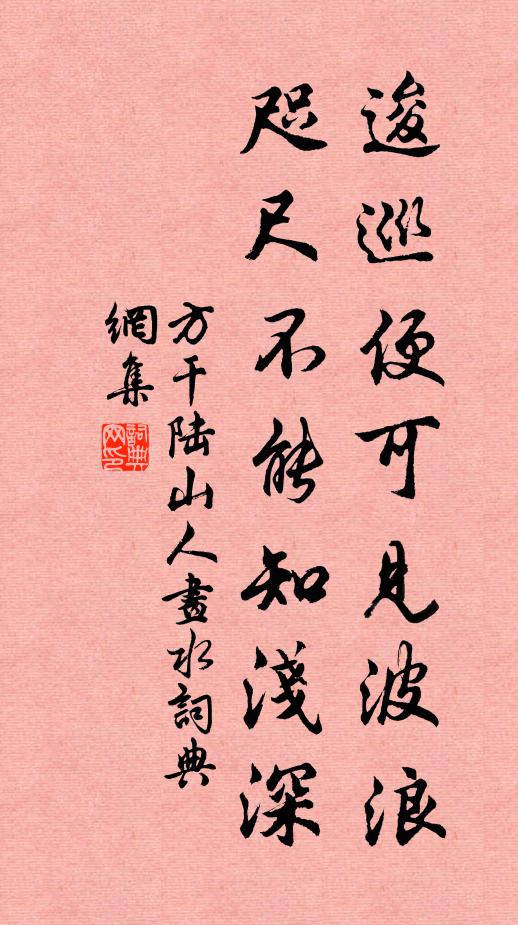 逡巡便可見波浪
咫尺不能知淺深
方干陆山人畫水詞典
網集
詞典網印